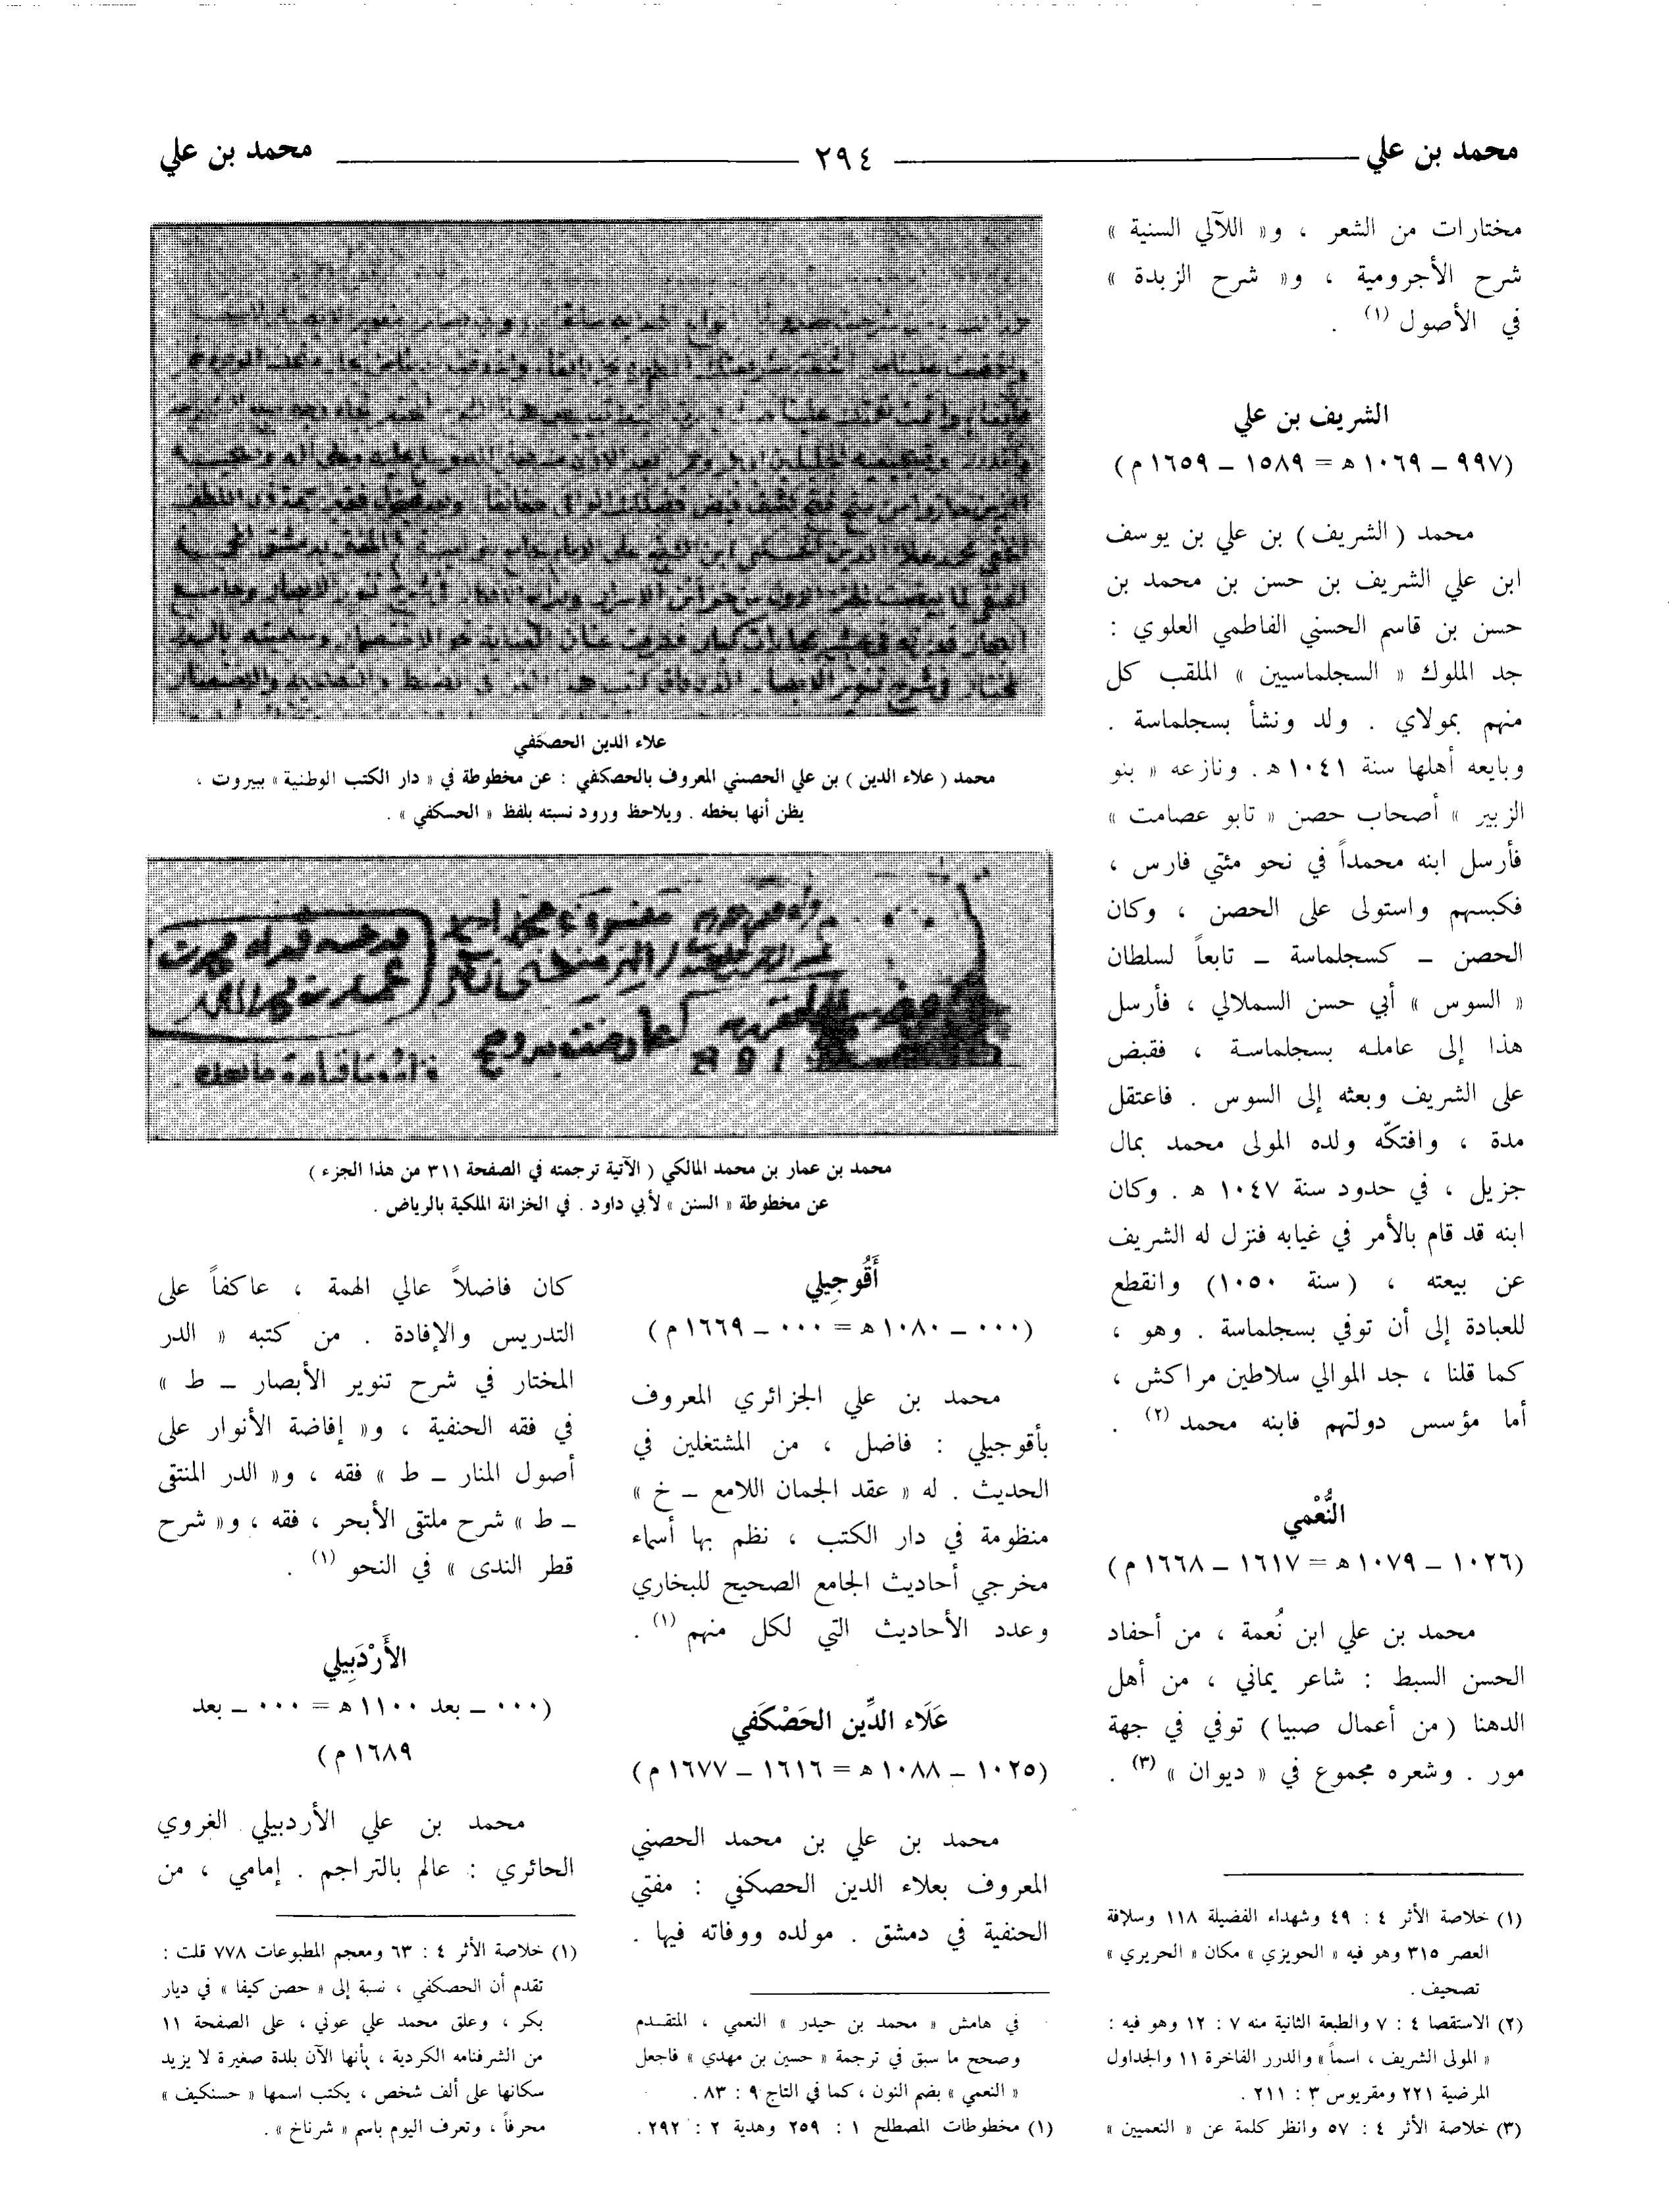 محمد بن علي ٢٩٤ محمد بن علي
مختارات من الشعر ، و« اللآلي السنية »
شرح الأجرومية ، و« شرح الزبدة »
في الأصول (١) .
الشريف بن علي
(٩٩٧ – ١٠٦٩ هـ = ١٥٨٩ – ١٦٥٩ م)
محمد (الشريف) بن علي بن يوسف
ابن علي الشريف بن حسن بن محمد بن
حسن بن قاسم الحسني الفاطمي العلوي :
جد الملوك « السجلماسيين » الملقب كل
منهم بمولاي . ولد ونشأ بسجلماسة .
وبايعه أهلها سنة ١٠٤١ هـ . ونازعه « بنو
الزبير » أصحاب حصن « تابو عصامت »
فأرسل ابنه محمداً في نحو مئتي فارس ،
فكبسهم واستولى على الحصن ، وكان
الحصن – كسجلماسة – تابعاً لسلطان
« السوس » أبي حسن السملالي ، فأرسل
هذا إلى عامله بسجلماسة ، فقبض
على الشريف وبعثه إلى السوس . فاعتقل
مدة ، وافتكّه ولده المولى محمد بمال
جزيل ، في حدود سنة ١٠٤٧ هـ . وكان
ابنه قد قام بالأمر في غيابه فنزل له الشريف
عن بيعته ، (سنة ١٠٥٠) وانقطع
للعبادة إلى أن توفي بسجلماسة . وهو ،
كما قلنا ، جد الموالي سلاطين مراكش ،
أما مؤسس دولتهم فابنه محمد (٢) .
النُّعْمي
(١٠٢٦ – ١٠٧٩ هـ = ١٦١٧ – ١٦٦٨ م)
محمد بن علي ابن نُعمة ، من أحفاد
الحسن السبط : شاعر يماني ، من أهل
الدهنا (من أعمال صبيا) توفي في جهة
مور . وشعره مجموع في « ديوان » (٣) .
(١) خلاصة الأثر ٤ : ٤٩ وشهداء الفضيلة ١١٨ وسلافة
العصر ٣١٥ وهو فيه « الحويزي » مكان « الحريري »
تصحيف .
(٢) الاستقصا ٤ : ٧ والطبعة الثانية منه ٧ : ١٢ وهو فيه :
« المولى الشريف ، اسماً » والدرر الفاخرة ١١ والجداول
المرضية ٢٢١ ومقريوس ٣ : ٢١١ .
(٣) خلاصة الأثر ٤ : ٥٧ وانظر كلمة عن « النعميين »
علاء الدين الحصكفي
محمد ( علاء الدين ) بن علي الحصني المعروف بالحصكفي : عن مخطوطة في « دار الكتب الوطنية » ببيروت ،
يظن أنها بخطه . ويلاحظ ورود نسبته بلفظ « الحسكفي » .
محمد بن عمار بن محمد المالكي ( الآتية ترجمته في الصفحة ٣١١ من هذا الجزء )
عن مخطوطة « السنن » لأبي داود . في الخزانة الملكية بالرياض .
أَقُوجِيلي
(٠٠٠ – ١٠٨٠ هـ = ٠٠٠ – ١٦٦٩ م)
محمد بن علي الجزائري المعروف
بأقوجيلي : فاضل ، من المشتغلين في
الحديث . له « عقد الجمان اللامع – خ »
منظومة في دار الكتب ، نظم بها أسماء
مخرجي أحاديث الجامع الصحيح للبخاري
وعدد الأحاديث التي لكل منهم (١) .
عَلَاء الدِّين الحَصْكَفي
(١٠٢٥ – ١٠٨٨ هـ = ١٦١٦ – ١٦٧٧ م)
محمد بن علي بن محمد الحصني
المعروف بعلاء الدين الحصكفي : مفتي
الحنفية في دمشق . مولده ووفاته فيها .
في هامش « محمد بن حيدر » النعمي ، المتقدم
وصحح ما سبق في ترجمة « حسين بن مهدي » فاجعل
« النعمي » بضم النون ، كما في التاج ٩ : ٨٣ .
(١) مخطوطات المصطلح ١ : ٢٥٩ وهدية ٢ : ٢٩٢ .
كان فاضلاً عالي الهمة ، عاكفاً على
التدريس والإفادة . من كتبه « الدر
المختار في شرح تنوير الأبصار – ط »
في فقه الحنفية ، و« إفاضة الأنوار على
أصول المنار – ط » فقه ، و« الدر المنتقى
– ط » شرح ملتقى الأبحر ، فقه ، و« شرح
قطر الندى » في النحو (١) .
الأَرْدَبِيلي
(٠٠٠ – بعد ١١٠٠ هـ = ٠٠٠ – بعد
١٦٨٩ م)
محمد بن علي الأردبيلي الغروي
الحائري : عالم بالتراجم . إمامي ، من
(١) خلاصة الأثر ٤ : ٦٣ ومعجم المطبوعات ٧٧٨ قلت :
تقدم أن الحصكفي ، نسبة إلى « حصن كيفا » في ديار
بكر ، وعلق محمد علي عوني ، على الصفحة ١١
من الشرفنامه الكردية ، بأنها الآن بلدة صغيرة لا يزيد
سكانها على ألف شخص ، يكتب اسمها « حسنكيف »
محرفاً ، وتعرف اليوم باسم « شرناخ » .